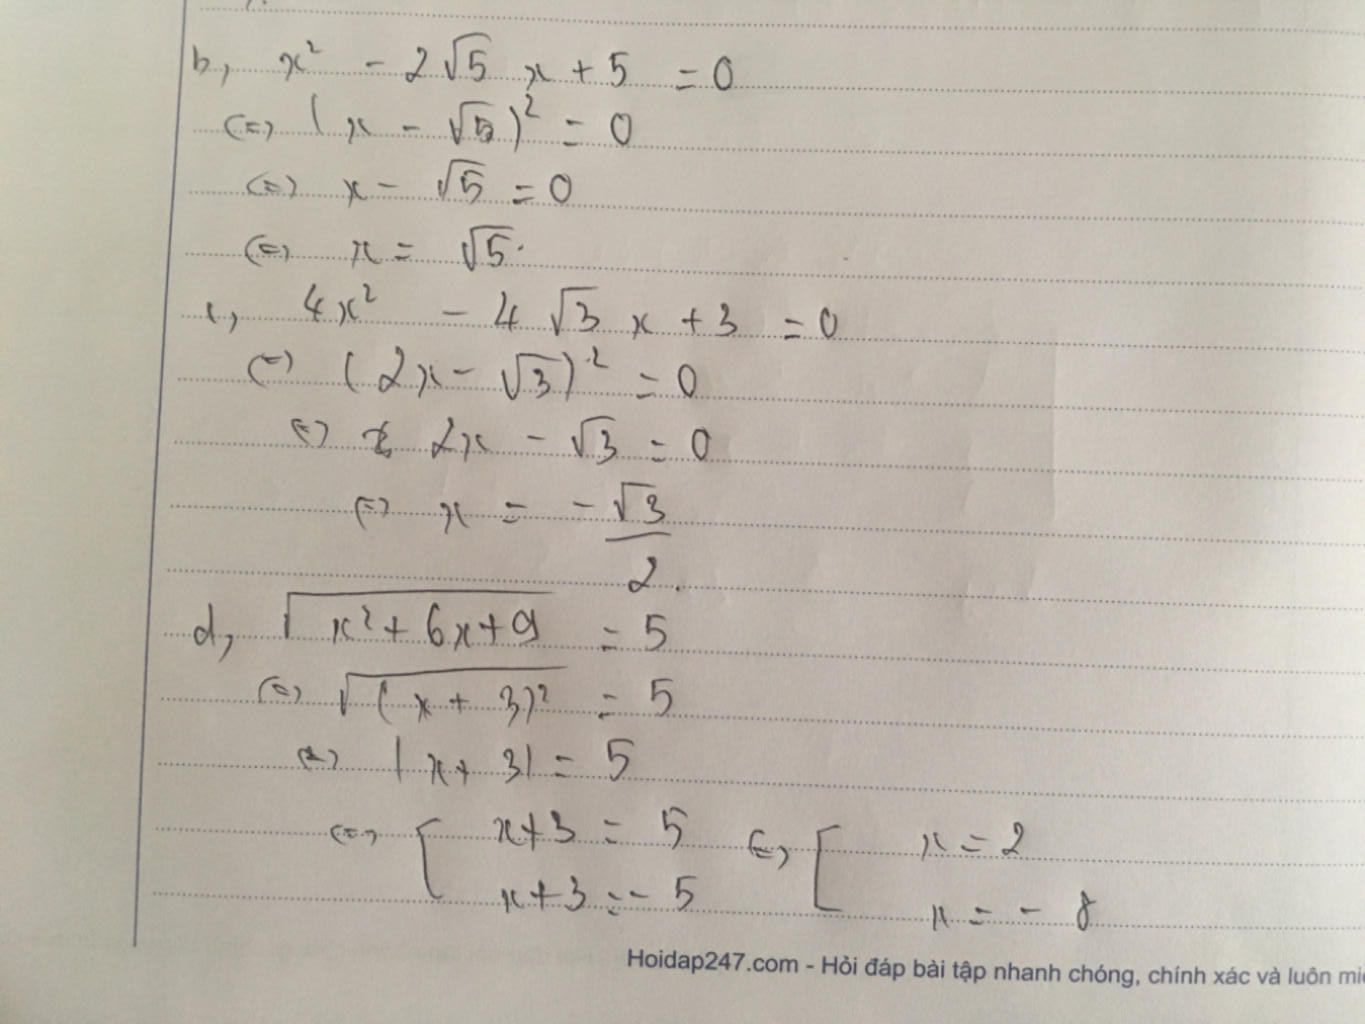 b, x² - 2√5 x + 5 = 0
(=) (x - √5)² = 0
(=) x - √5 = 0
(=) x = √5.
c, 4x² - 4√3 x + 3 = 0
(=) (2x - √3)² = 0
(=) 2x - √3 = 0
(=) x = -√3/2.
d, √(x² + 6x + 9) = 5
(=) √((x + 3)²) = 5
(=) |x + 3| = 5
(=) [ x + 3 = 5 (=) [ x = 2
x + 3 = - 5 x = - 8
Hoidap247.com - Hỏi đáp bài tập nhanh chóng, chính xác và luôn